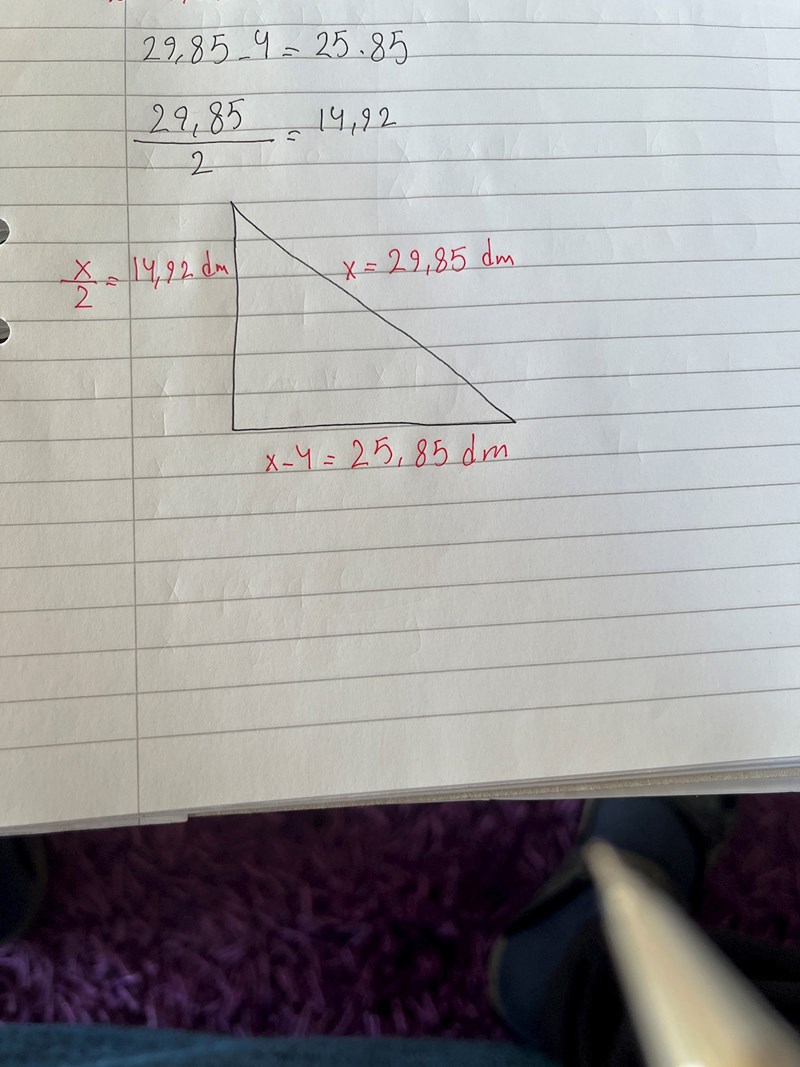 29,85 - 4 = 25.85
29,85
2
= 14,92
x/2 = 14,92 dm
x = 29,85 dm
x - 4 = 25,85 dm